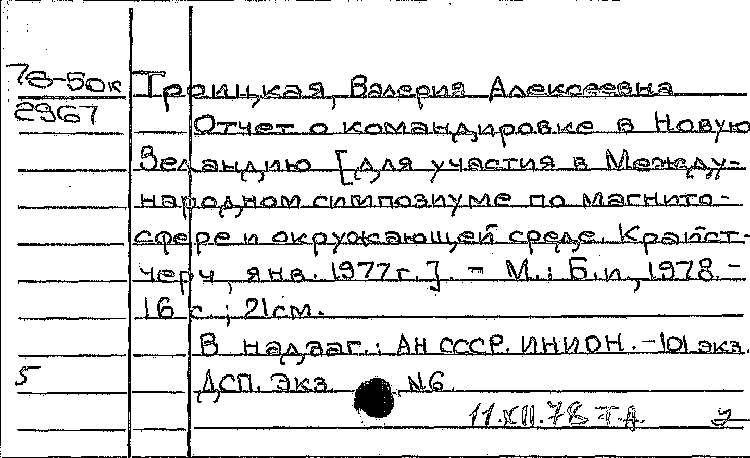 78-50к Троицкая, Валерия Алексеевна
2967 Отчет о командировке в Новую
Зеландию [для участия в Между-
народном симпозиуме по магнито-
сфере и окружающей среде. Крайст-
черч, янв. 1977г.]. - М.: Б.и, 1978.-
16 с.; 21см.
В надзаг.: АН СССР. ИНИОН. -101 экз.
5 ДСП. Экз. N6.
11.XII.78 Т.Д.